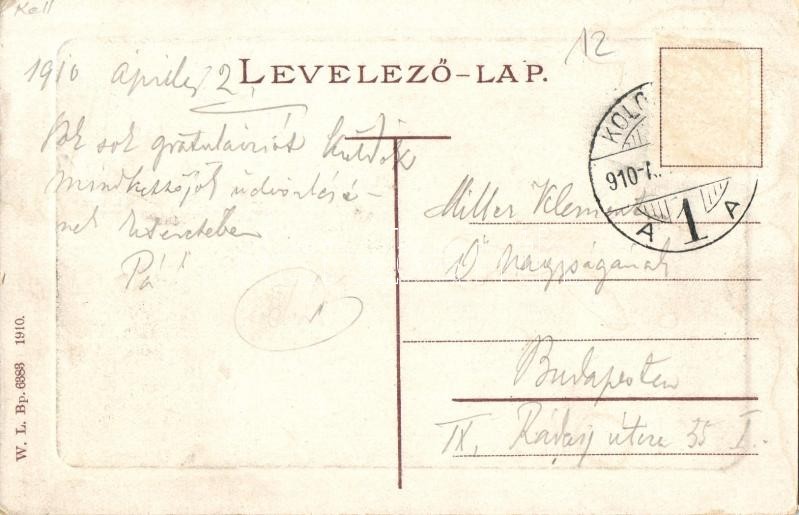 Kell
12
1910 április 2.
LEVELEZŐ-LAP.
Sok sok gratulációt küldök
mindkettőjök üdvözlésé-
nek
Pá
KOLO
910
A 1 A
Miller Klement
Ő Nagyságának
Budapesten
IX. Ráday útcza 35 I.
W. L. Bp. 6383 1910.